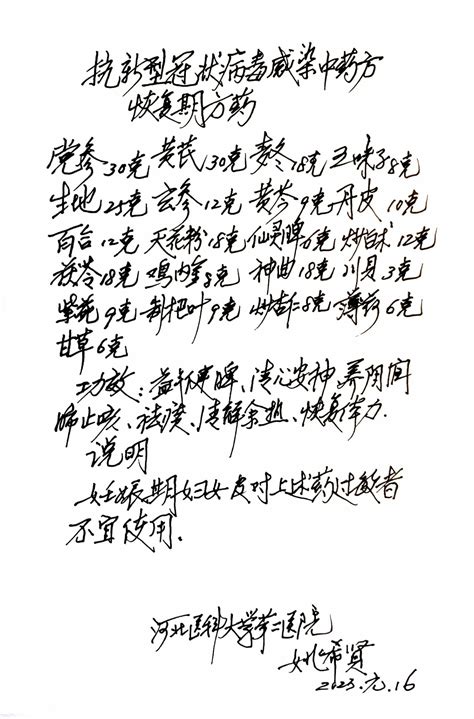 抗新型冠状病毒感染中药方
恢复期方药
党参30克 黄芪30克 麦冬18克 五味子8克
生地25克 玄参12克 黄芩9克 丹皮10克
百合12克 天花粉18克 仙灵脾6克 炒白术12克
茯苓18克 鸡内金8克 神曲18克 川贝3克
紫菀9克 制杷叶9克 炒杏仁8克 薄荷6克
甘草6克
功效：益气健脾、清心安神、养阴润
肺止咳、祛痰、清解余热、恢复体力.
说明
妊娠期妇女及对上述药过敏者
不宜使用.
河北医科大学第二医院
姚希贤
2023.元.16